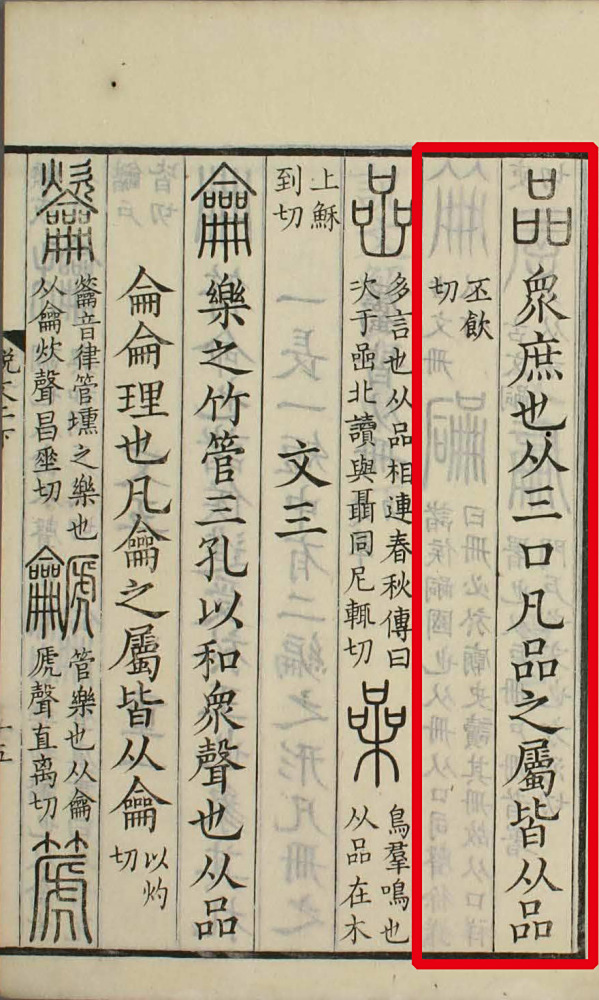 品衆庶也从三口凡品之屬皆从品
丕飲
切
喦多言也从品相連春秋傳曰
次于喦北讀與聶同尼輒切
喿鳥羣鳴也
从品在木
上穌
到切
文三
龠樂之竹管三孔以和衆聲也从品
侖侖理也凡龠之屬皆从龠
以灼
切
龡籥音律管壎之樂也
从龠炊聲昌垂切
䶵管樂也从龠
虒聲直离切
篪
說文二下
十五